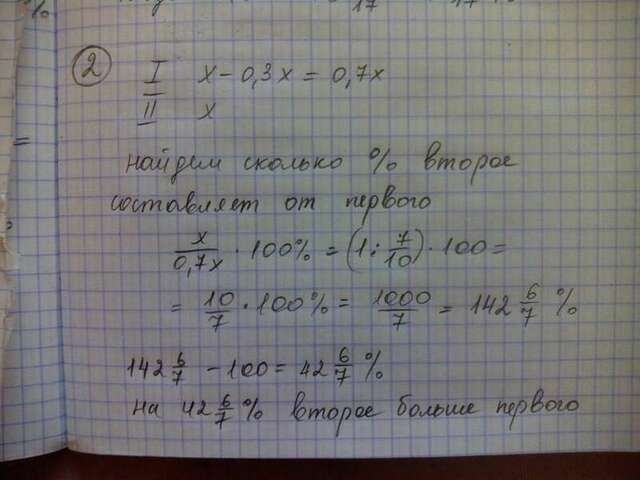 %
17
2
I x - 0,3x = 0,7x
II x
=
найдем сколько % второе
составляет от первого
x/0,7x · 100% = (1 : 7/10) · 100 =
= 10/7 · 100% = 1000/7 = 142 6/7 %
142 6/7 - 100 = 42 6/7 %
на 42 6/7 % второе больше первого